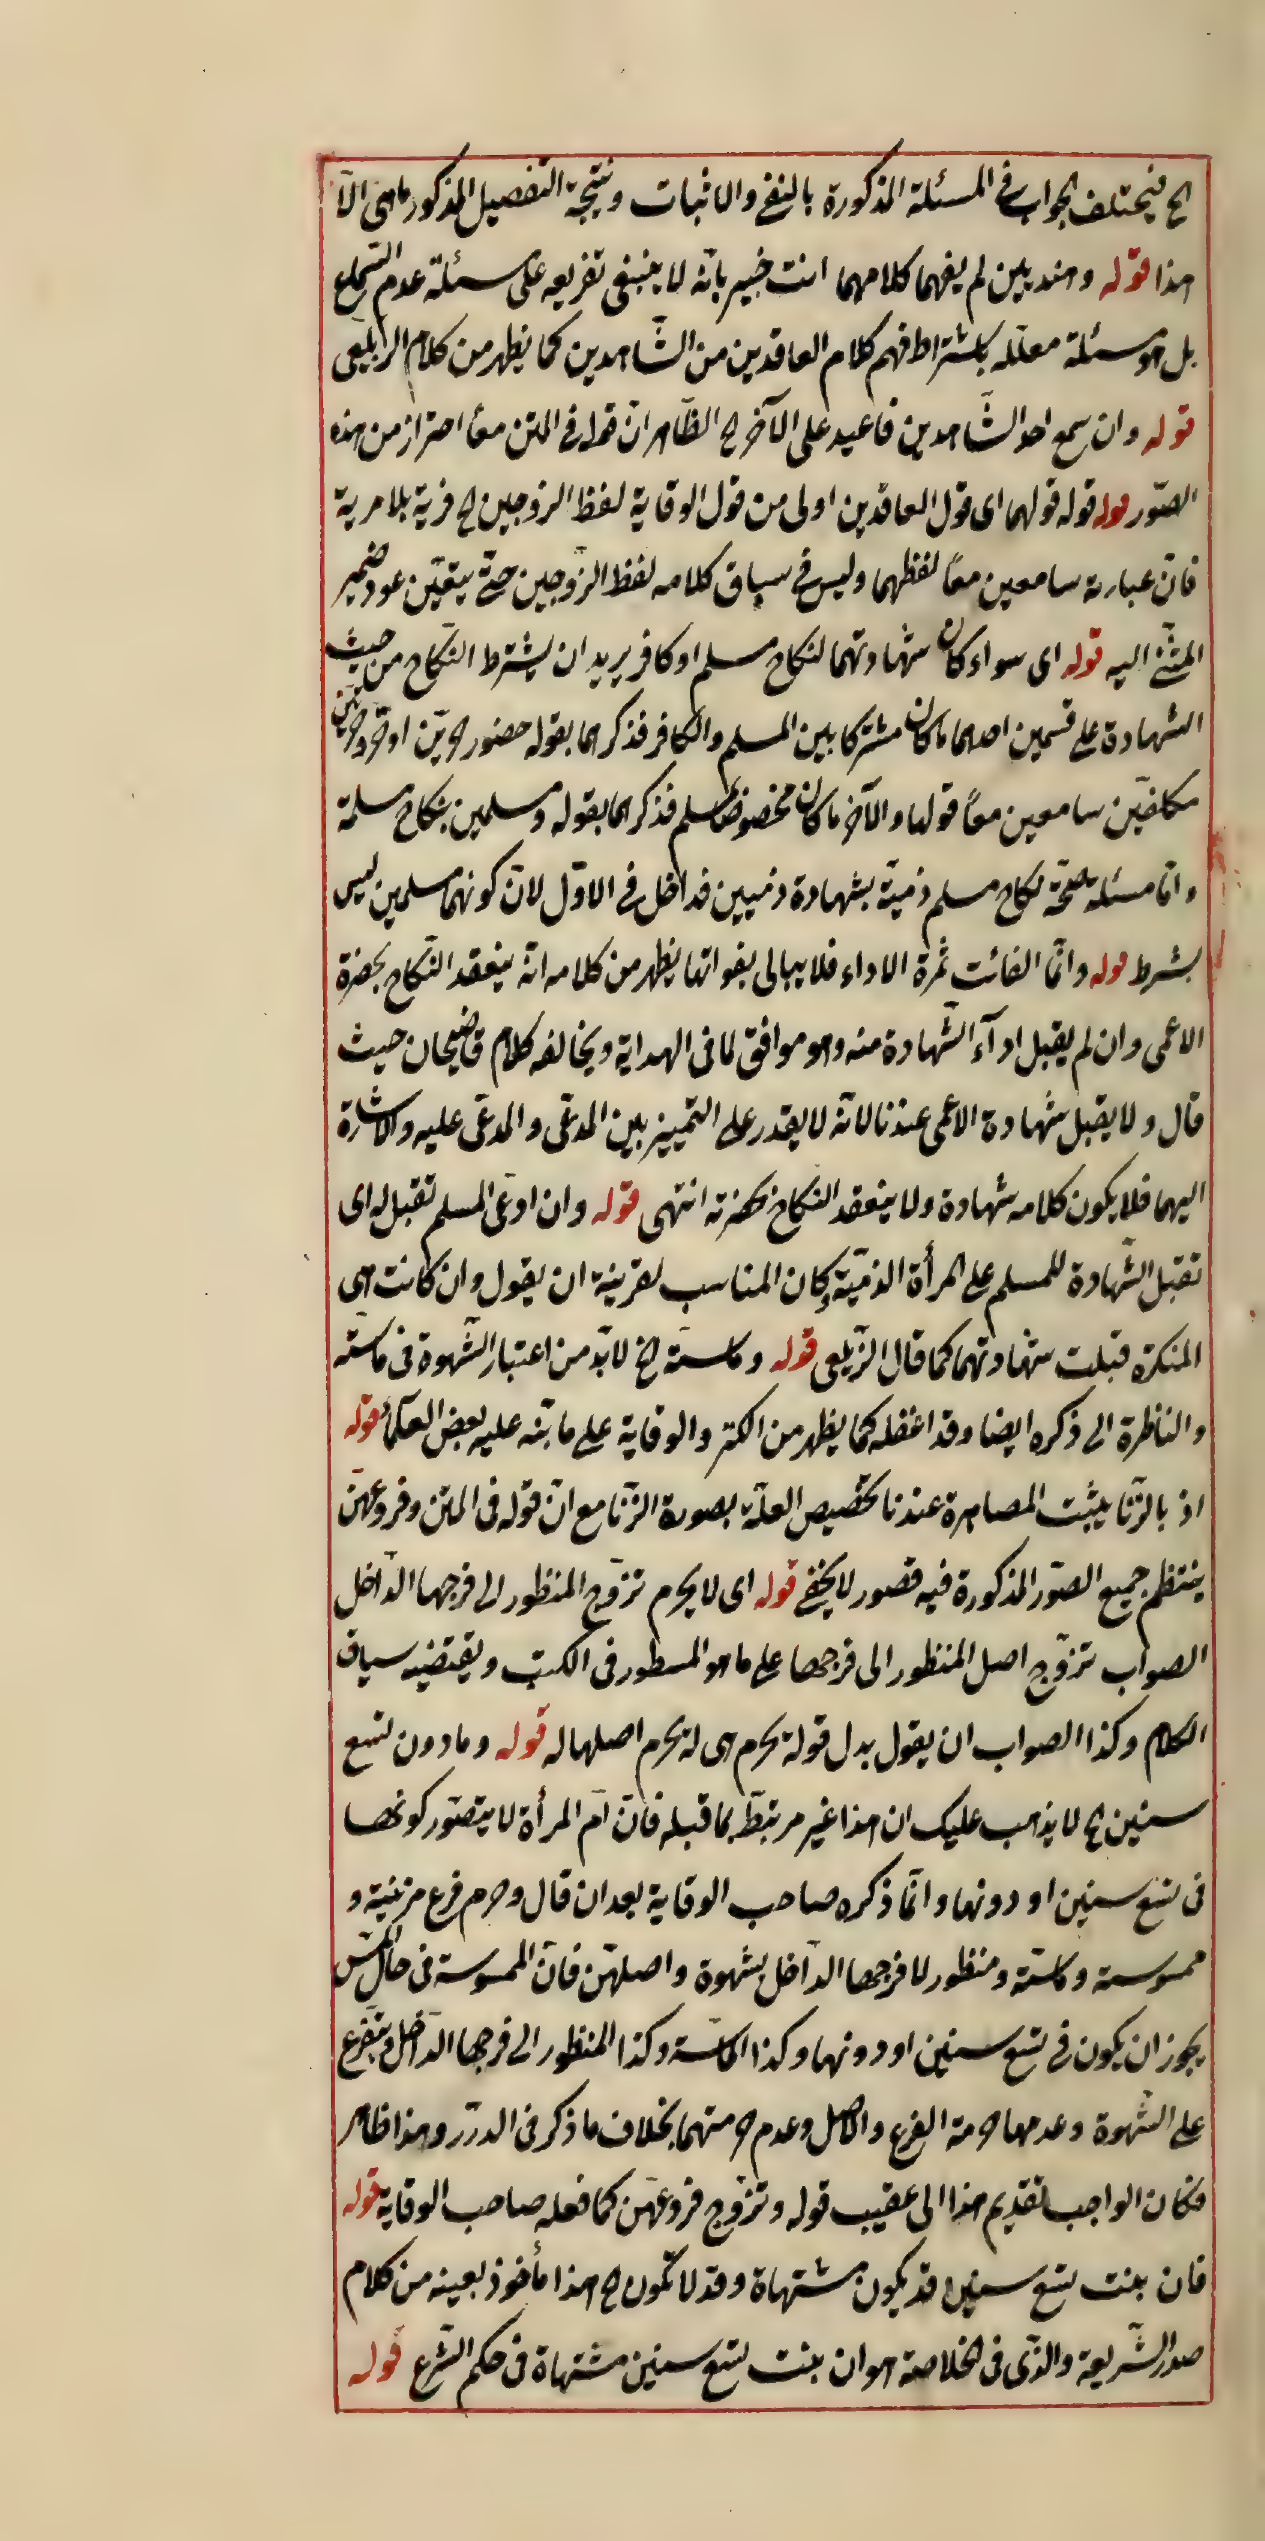 الخ فيختلف الجواب في المسئلة المذكورة بالنفي والاثبات ونتيجة التفصيل المذكور ما هي الا
هذا قوله وهنديين لم يفهما كلامهما انت خبير بانه لا ينبغي تفريعه على مسئلة عدم السماع
بل هو مسئلة معللة باشتراط فهم كلام العاقدين من الشاهدين كما يظهر من كلام الزيلعي
قوله وان سمع احد الشاهدين فاعيد على الآخر الخ الظاهر ان قوله في المتن معا احتراز من هذه
الصور قوله قوله قولهما اى قول العاقدين اولى من قول الوقاية لفظ الزوجين الخ فرية بلا مرية
فان عبارته سامعين معًا لفظهما وليس في سياق كلامه لفظ الزوجين حتى يتعين عود ضمير
المثنى اليه قوله اى سواء كان شهادتهما لنكاح مسلم او كافر يريد ان يشترط النكاح من حيث
الشهادة على قسمين احدهما ما كان مشتركا بين المسلم والكافر فذكرهما بقوله حضور حرين او حر وحرتين
مكلفين سامعين معًا قولهما والآخر ما كان مخصوصا بمسلم فذكرهما بقوله ومسلمين بنكاح مسلمة
واما مسئلة صحة نكاح مسلم ذمية بشهادة ذميين فداخل في الاول لان كونهما مسلمين ليس
بشرط قوله وانما الفائت ثمرة الاداء فلا يبالى بفواتها يظهر من كلامه انه ينعقد النكاح بحضرة
الاعمى وان لم يقبل اداء الشهادة منه وهو موافق لما في الهداية ويخالفه كلام قاضيخان حيث
قال ولا يقبل شهادة الاعمى عندنا لانه لا يقدر على التمييز بين المدعى والمدعى عليه والاشارة
اليهما فلا يكون كلامه شهادة ولا ينعقد النكاح بحضرته انتهى قوله وان ادعى المسلم تقبل له اى
تقبل الشهادة للمسلم على المرأة الذمية وكان المناسب لقرينة ان يقول وان كانت هى
المنكرة قبلت شهادتهما كما قال الزيلعى قوله وماسته الخ لا بد من اعتبار الشهوة في ماسته
والناظرة الى ذكره ايضا وقد اغفله كما يظهر من الكنز والوقاية على ما نبه عليه بعض العلماء قوله
اذ بالزنا يثبت المصاهرة عندنا تخصيص العلة بصورة الزنا مع ان قوله في المتن وفروعهن
ينتظم جميع الصور المذكورة فيه قصور لا يخفى قوله اى لا يحرم تزوج المنظور الى فرجها الداخل
الصواب تزوج اصل المنظور الى فرجها على ما هو المسطور في الكتب ويقتضيه سياق
الكلام وكذا الصواب ان يقول بدل قوله يحرم هى له يحرم اصلها له قوله وما دون تسع
سنين الخ لا يذهب عليك ان هذا غير مرتبط بما قبله فان ام المرأة لا يتصور كونها
في تسع سنين او دونها وانما ذكره صاحب الوقاية بعد ان قال وحرم فرع مزنيته و
ممسوسته وماسته ومنظور الا فرجها الداخل بشهوة واصلهن فان الممسوسة في حال المس
يجوز ان يكون في تسع سنين او دونها وكذا الماسة وكذا المنظور الى فرجها الداخل ويتفرع
على الشهوة وعدمها حرمة الفرع والاصل وعدم حرمتهما بخلاف ما ذكر في الدرر وهذا ظاهر
فكان الواجب تقديم هذا الى عقيب قوله وتزوج فروعهن كما فعله صاحب الوقاية قوله
فان بنت تسع سنين قد يكون مشتهاة وقد لا تكون الخ هذا مأخوذ بعينه من كلام
صدر الشريعة والذى في الخلاصة هو ان بنت تسع سنين مشتهاة في حكم الشرع قوله